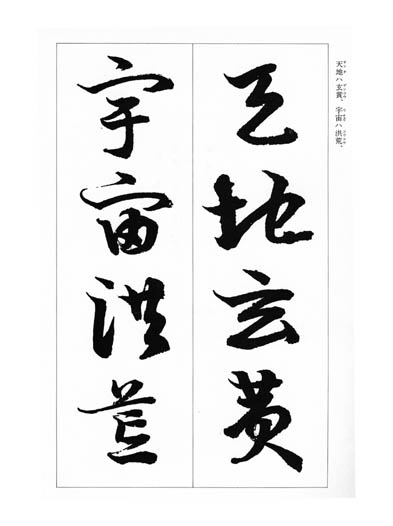 天地ハ玄黄、宇宙ハ洪荒、
天地玄黄
宇宙洪荒